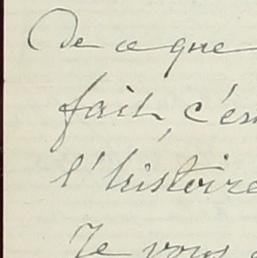 De ce que
fait, c'es
l'histoire
Je vous